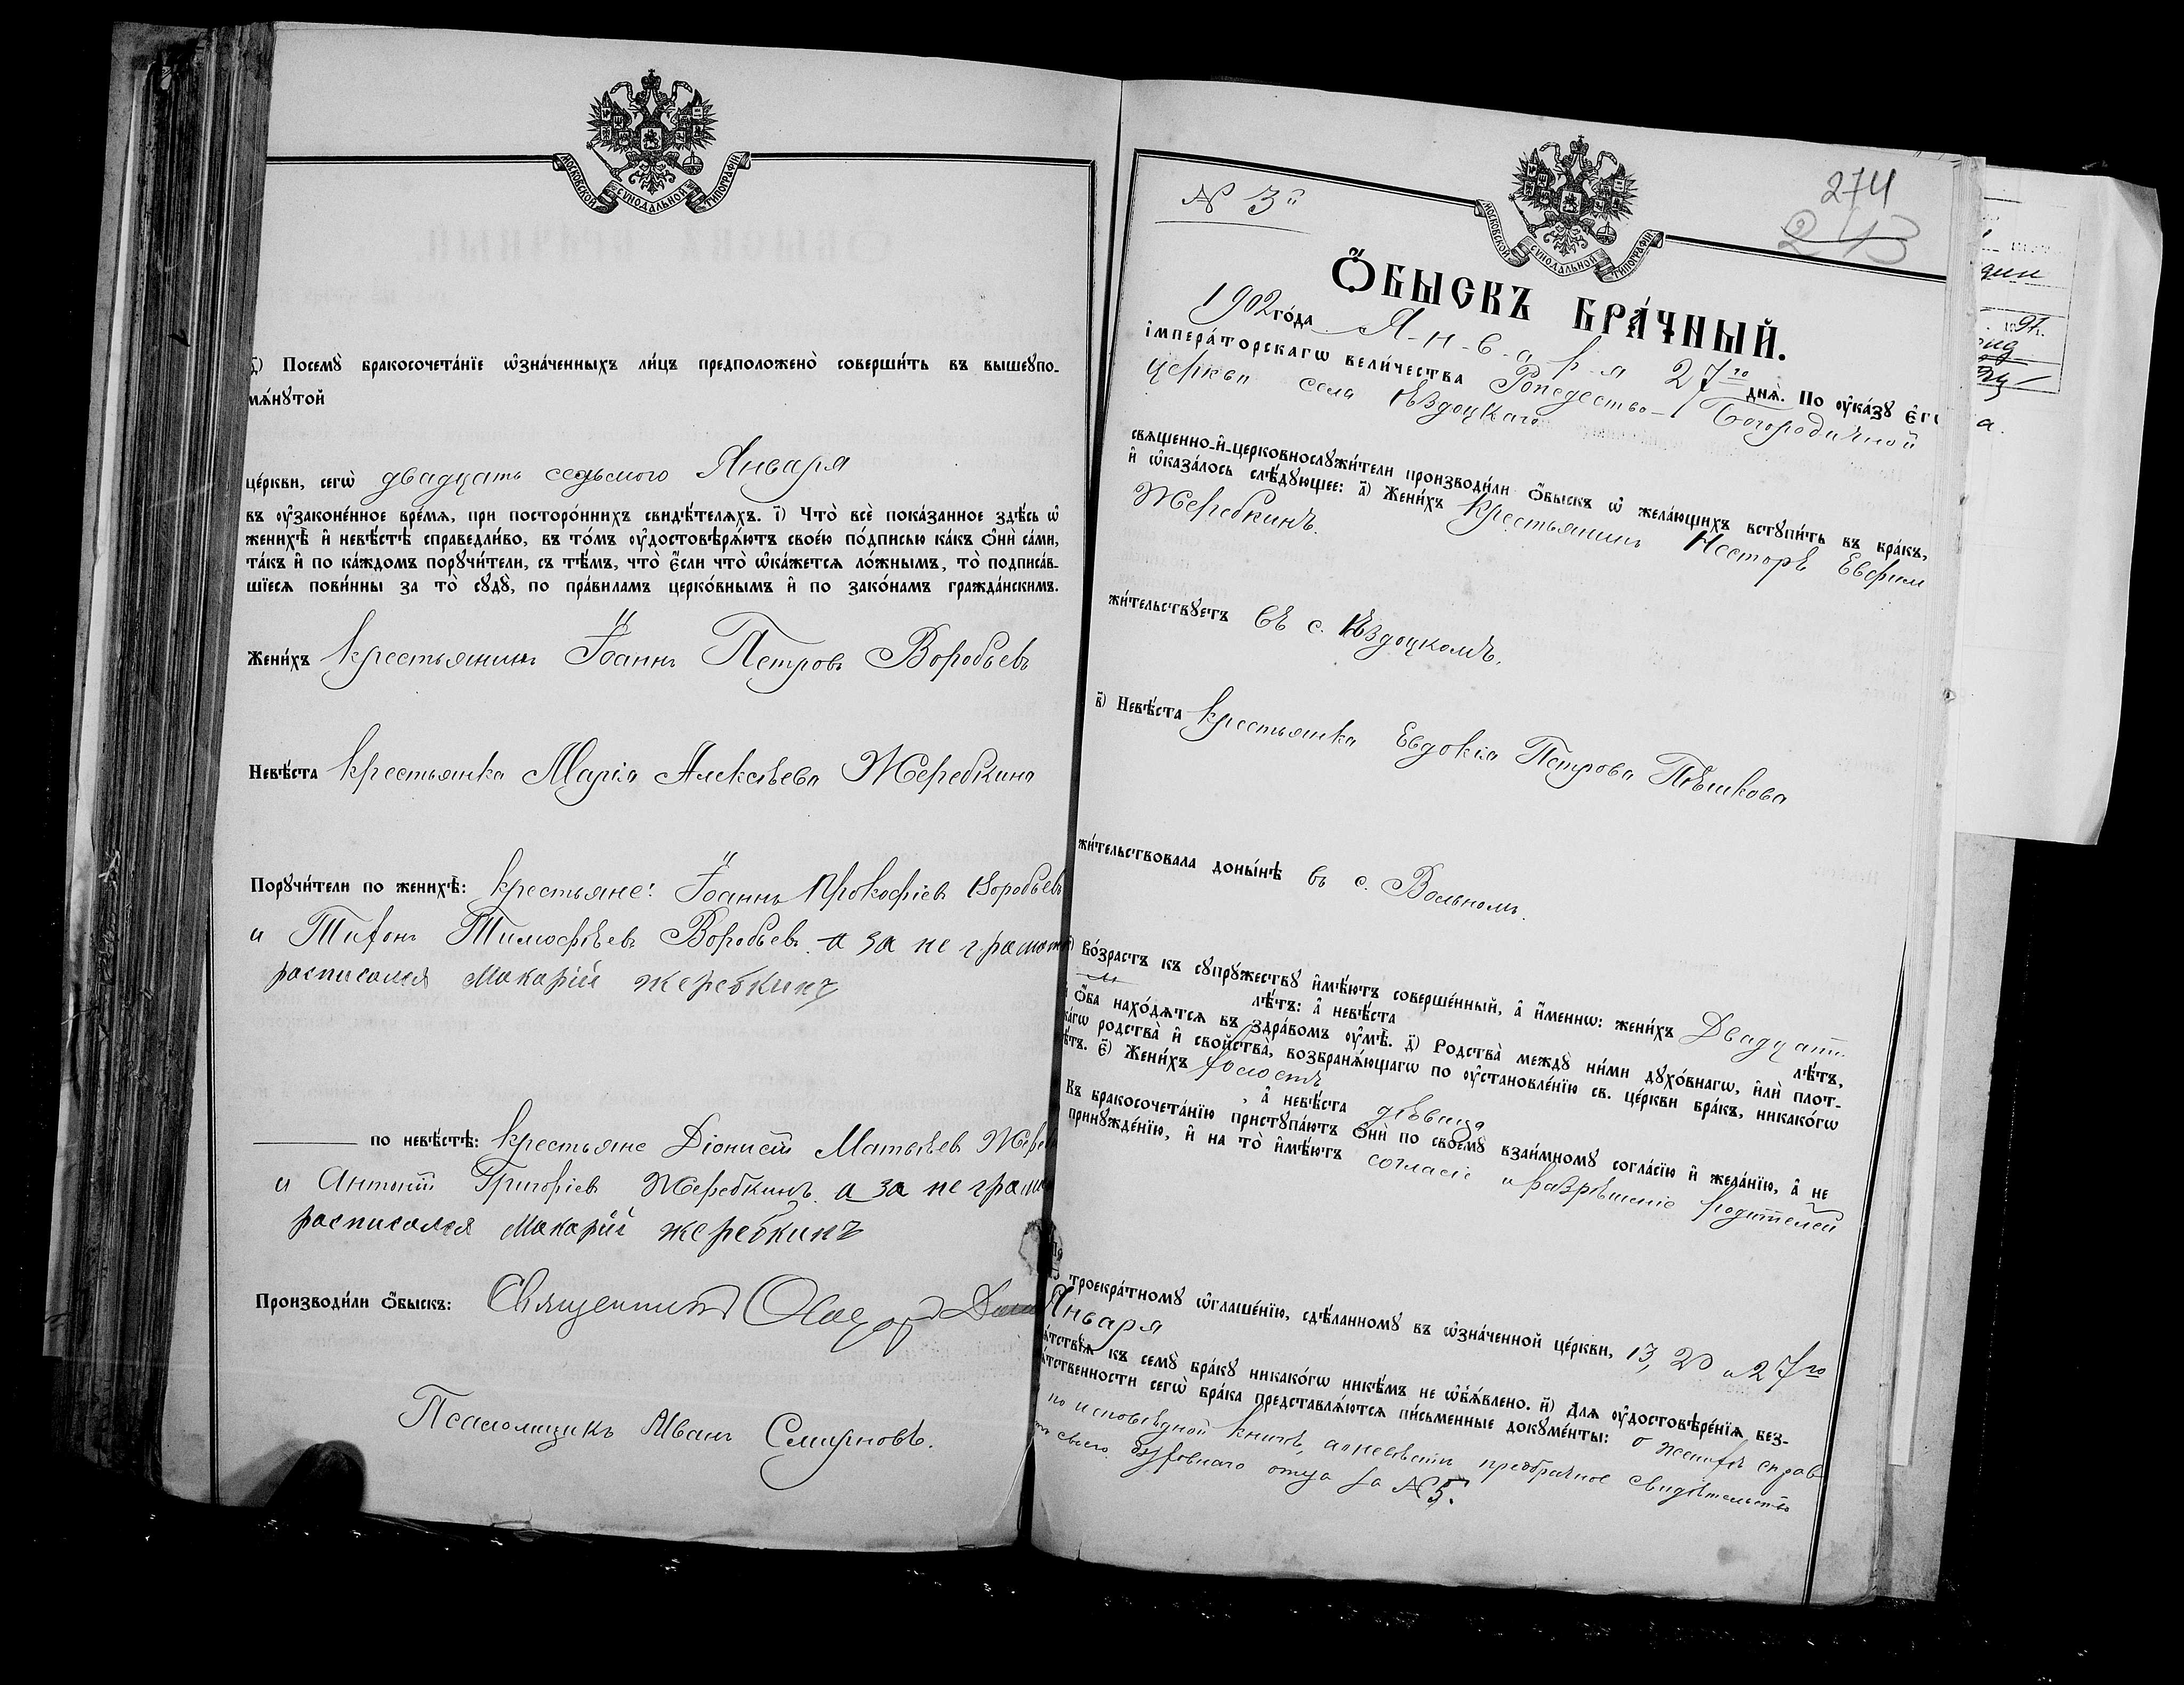 МОСКОВСКОЙ СѴНОДАЛЬНОЙ ТИПОГРАФІИ
Посемꙋ̀ бракосочета́нїе ѡ҆зна́ченныхъ ли́цъ предположено̀ соверши́ть въ вышеꙋпо-
мѧ́нꙋтой
це́ркви, сегѡ̀ двадцать седьмого Января
въ ᲂу҆зако́ненное вре́мѧ, при посторо́ннихъ свидѣ́телѧхъ. і҃) Что̀ всѐ пока́занное здѣ́сь ѡ҆
женихѣ̀ и҆ невѣ́стѣ справедли́во, въ то́мъ ᲂу҆достовѣрѧ́ютъ свое́ю по́дписью ка́къ ѻ҆нѝ са́ми,
та́къ и҆ по ка́ждомъ порꙋчи́тели, съ тѣ́мъ, что̀ є҆́сли что̀ ѡ҆ка́жетсѧ ло́жнымъ, то̀ подписа́в-
шїесѧ пови́нны за то̀ сꙋдꙋ̀, по пра́виламъ церко́внымъ и҆ по зако́намъ гражда́нскимъ.
Жени́хъ Крестьянинъ Іоаннъ Петровъ Воробьевъ
Невѣ́ста Крестьянка Марія Алексѣева Жеребкина
Порꙋчи́тели по женихѣ̀: Крестьяне: Іоаннъ Прокофіевъ Воробьевъ
и Тихонъ Тимофѣевъ Воробьевъ а за не грамот
росписался Макарій жеребкинъ
по невѣ́стѣ: Крестьяне Діонисій Матвѣевъ Жереб
и Антоній Григоріевъ Жеребкинъ а за не грам
росписался Макарій жеребкинъ
Производи́ли ѻ҆́быскъ: Священникъ
Псаломщикъ Иванъ Смирновъ.
МОСКОВСКОЙ СѴНОДАЛЬНОЙ ТИПОГРАФІИ
№ 3й
274
213
Ѻ҆́БЫСКЪ БРА́ЧНЫЙ.
1902 го́да Января 27го днѧ̀. По ᲂу҆ка́зꙋ є҆гѡ̀
і҆мпера́торскагѡ вели́чества Рождество-Богородичной
церкви села Ѣздоцкаго
свѧщенно-и҆-церковнослꙋжи́тели производи́ли ѻ҆́быскъ ѡ҆ жела́ющихъ встꙋпи́ть въ бра́къ,
и҆ ѡ҆каза́лось слѣ́дꙋющее: а҃) Жени́хъ Крестьянинъ Несторъ Евфим
Жеребкинъ.
жи́тельствꙋетъ въ с. Ѣздоцкомъ.
в҃) Невѣ́ста Крестьянка Евдокія Петрова Пѣшкова
жи́тельствовала доны́нѣ въ с. Вольномъ.
Во́зрастъ къ сꙋпрꙋ́жествꙋ и҆мѣ́ютъ соверше́нный, а҆ и҆́меннѡ: жени́хъ Двадцати лѣ́тъ,
лѣ́тъ: а҆ невѣ́ста
ѻ҆́ба нахо́дѧтсѧ въ здра́вомъ ᲂу҆мѣ̀. д҃) Родства̀ междꙋ̀ ни́ми дꙋхо́внагѡ, и҆лѝ плот-
ка́гѡ родства̀ и҆ сво́йства̀, возбранѧ́ющагѡ по ᲂу҆становле́нїю св. це́ркви бра́къ, никако́гѡ
ѣтъ. є҃) Жени́хъ холостъ, а҆ невѣ́ста дѣвица
Къ бракосочета́нїю пристꙋпа́ютъ ѻ҆нѝ по своемꙋ̀ взаи́мномꙋ согла́сїю и҆ жела́нїю, а҆ не
принꙋжде́нїю, и҆ на то̀ и҆мѣ́ютъ согласіе и разрѣшеніе родителей
троекра́тномꙋ ѡ҆глаше́нїю, сдѣ́ланномꙋ въ ѡ҆зна́ченной це́ркви, 13, 20 и 27го
Января
ѧ́тствїѧ къ семꙋ̀ бра́кꙋ никако́гѡ никѣ́мъ не ѡ҆б̾ѧ́влено. и҃) Длѧ ᲂу҆достовѣре́нїѧ без-
ѧ́тственности сегѡ̀ бра́ка представлѧ́ютсѧ пи́сьменные докꙋме́нты: о женихѣ справ
по исповѣдной книгѣ, а о невѣстѣ предбрачное свидѣтельство
своего духовнаго отца за № 5.